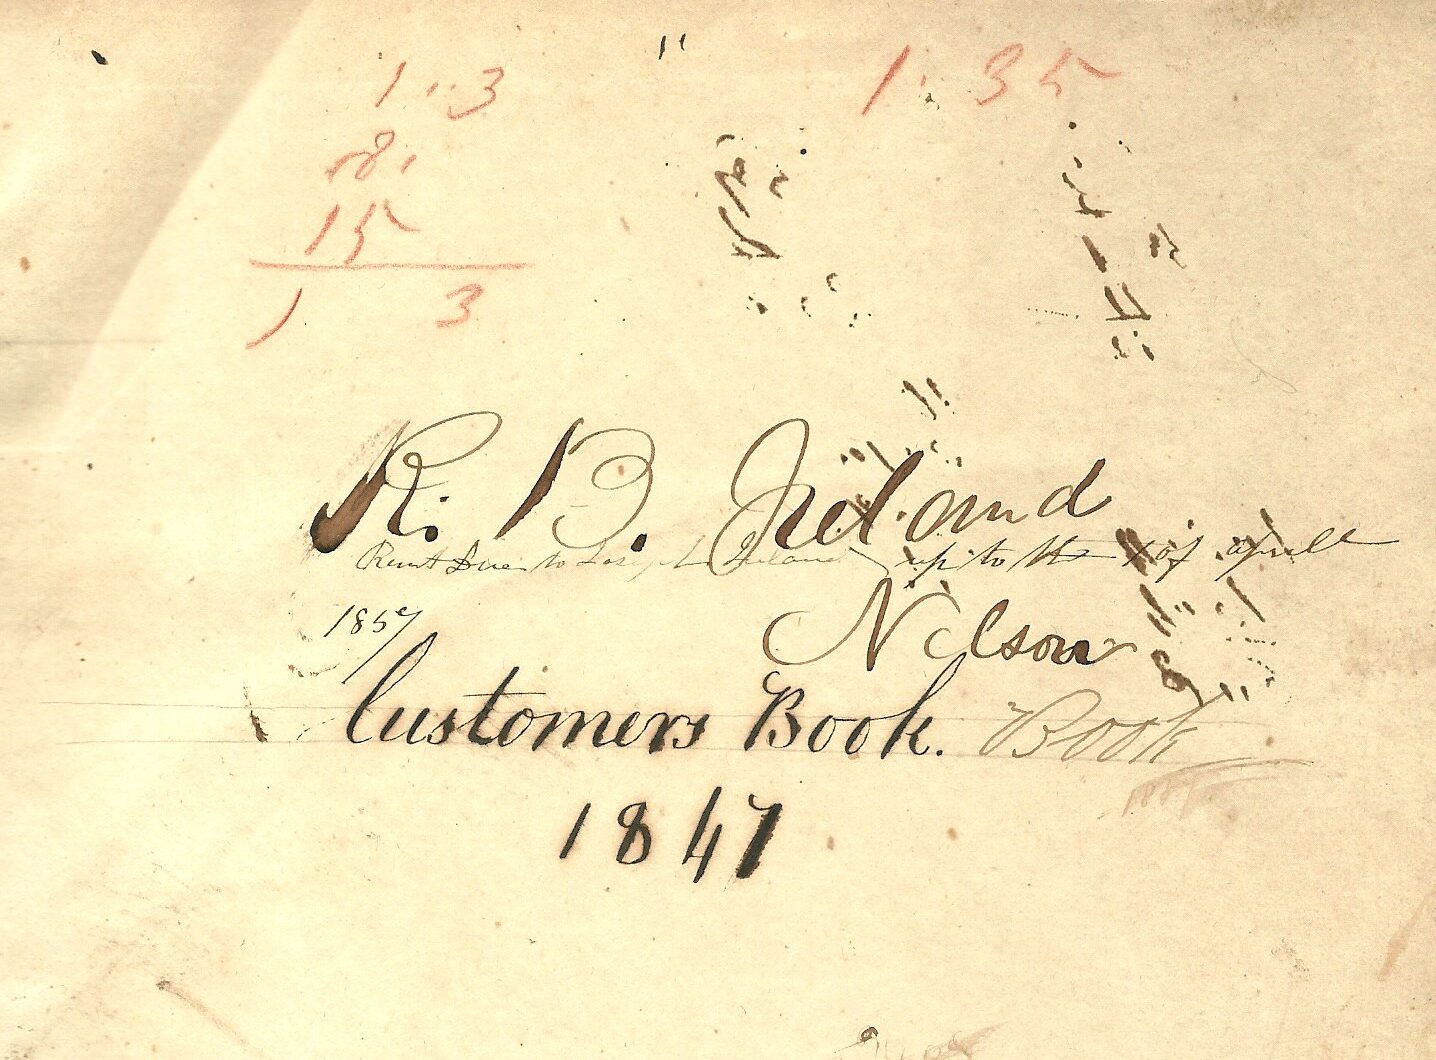 1 · 3
1 · 35
18
15
1 3
R. B. Ireland
Rent Due to Joseph Ireland up to the 1 of aprill
1857
Nelson
Customers Book. Book
1847